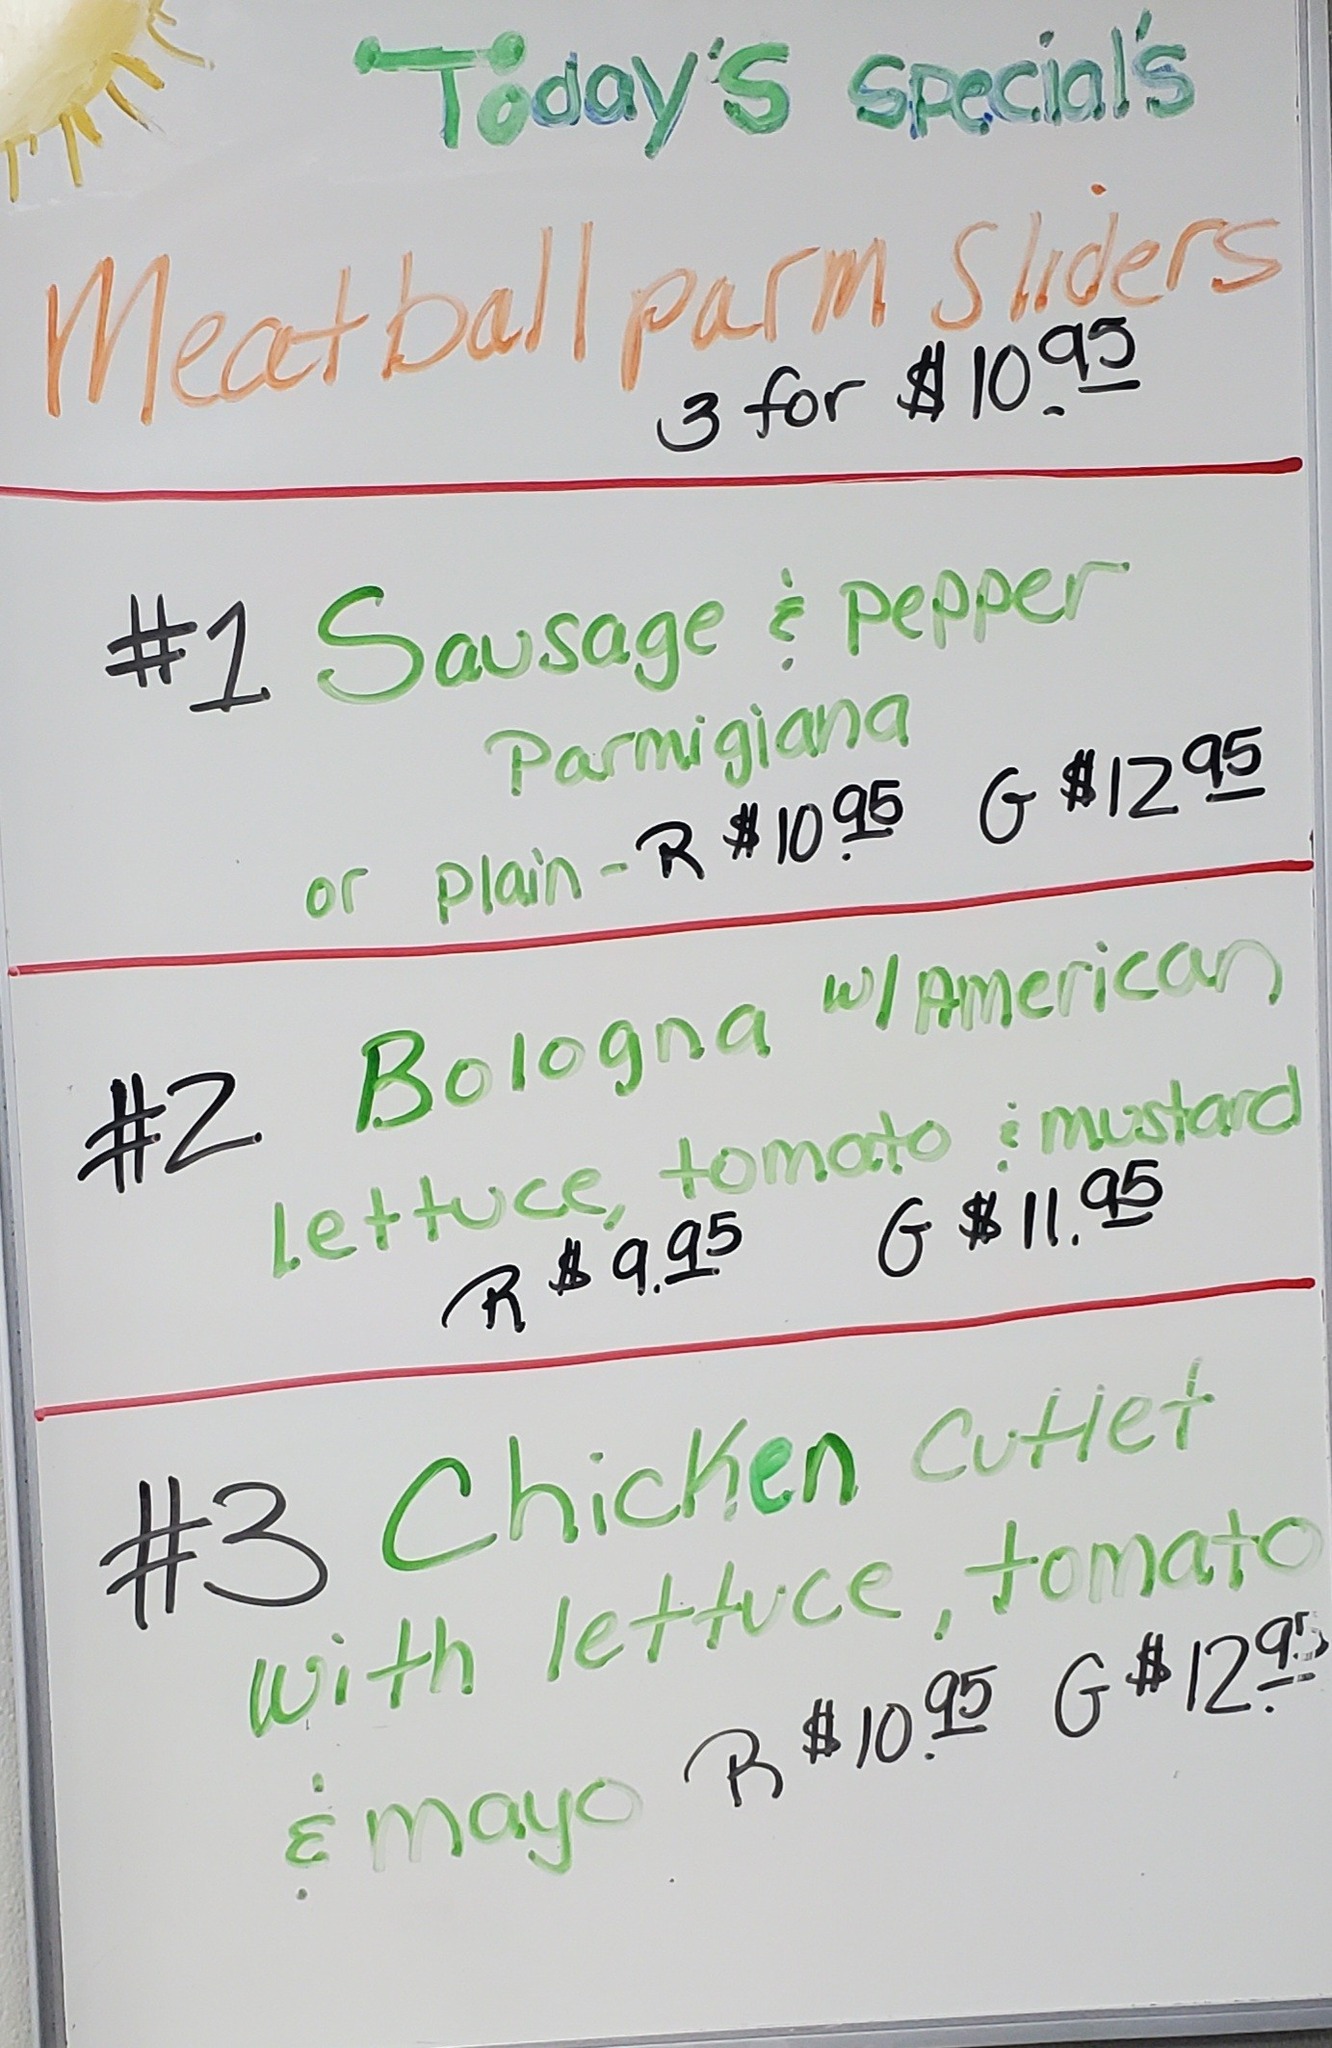 Today's Special's
Meatball parm Sliders
3 for $10.95
#1 Sausage & pepper
Parmigiana
or plain - R $10.95 G $12.95
#2 Bologna w/ American
lettuce, tomato & mustard
R $9.95 G $11.95
#3 Chicken Cutlet
with lettuce, tomato
& mayo R $10.95 G $12.95